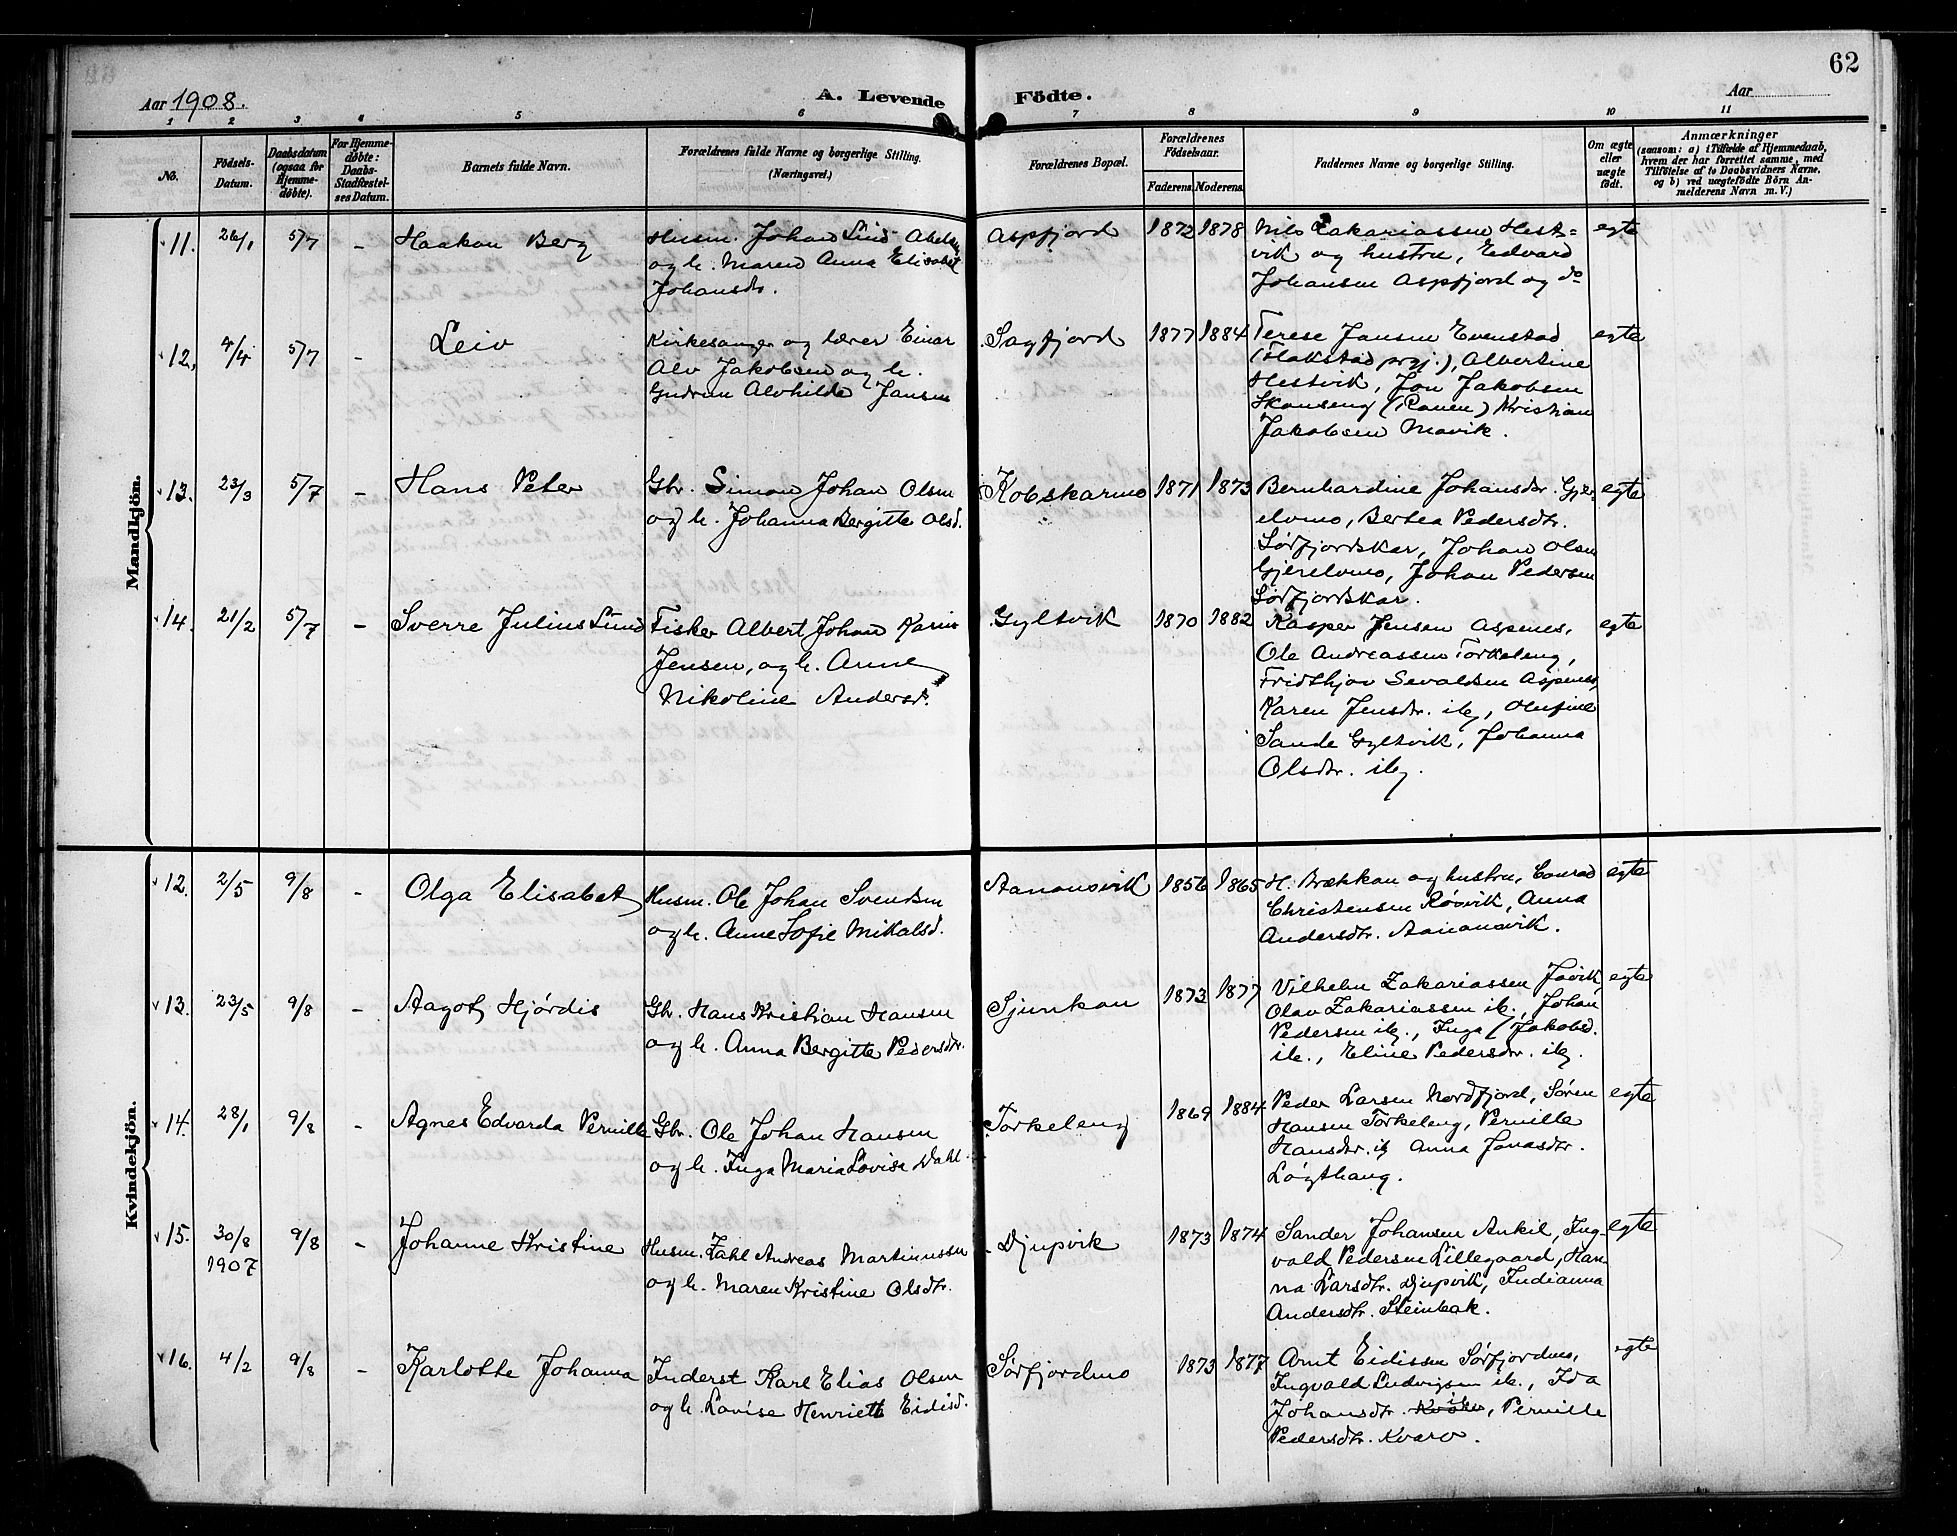 62
Aar 1908.
A. Levende Födte.
Aar
1 2 3 4 5 6 7 8 9 10 11
No.
Födsels-Datum.
Daabsdatum (ogsaa for Hjemme-döbte).
For Hjemme-döbte: Daabs-Stadfæstel-ses Datum.
Barnets fulde Navn.
Forældrenes fulde Navne og borgerlige Stilling.
(Næringsvei.)
Forældrenes Bopæl.
Forældrenes Födselsaar.
Faderens. Moderens.
Faddernes Navne og borgerlige Stilling.
Om ægte eller uægte födt.
Anmærkninger
(saasom: a) i Tilfælde af Hjemmedaab,
hvem der har forrettet samme, med
Tilföielse af to Daabsvidners Navne,
og b) ved uægtefödte Börn An-
melderens Navn m. V.)
Mandkjön.
11. 26/1 5/7 - Haakon Berg
Husm. Johan Lind
og h. Maren Anna Elisabet
Johansdr.
Aspfjord 1872 1878
Nils Zakariassen Hest=
vik og hustru, Edvard
Johansen Aspfjord og do
egte
12. 4/4 5/7 - Leiv
Kirkesanger og lærer Einar
Alv Jakobsen og h.
Gudrun Alvhilde Jansen
Sagfjord 1877 1884
Terese Jansen Evenstad
(Flakstad prgj.), Albertine
Hestvik, Jon Jakobsen
Skonseng (Ranen) Kristian
Jakobsen Movik.
egte
13. 23/3 5/7 - Hans Peter
Gbr. Simon Johan Olsen
og h. Johanna Bergitte Olsd.
Kobskarmo 1871 1873
Bernhardine Johansdr. Gjer-
elvmo, Bertea Pedersdtr.
Sørfjordskar, Johan Olsen
Gjerelvmo, Johan Pedersen
Sørfjordskar.
egte
14. 21/2 5/7 - Sverre Julius Lund
Fisker Albert Johan Karius
Jensen, og h. Anne
Nikoline Andersd.
Gyltvik 1870 1882
Kasper Jensen Aspenes,
Ole Andreassen Torkeleng,
Fridthjov Sevaldsen Aspenes,
Karen Jensdr. ib., Olufine
Sande Gyltvik, Johanna
Olsdtr. ib.
egte
Kvindekjön.
12. 2/5 9/8 - Olga Elisabet
Husm. Ole Johan Svendsen
og h. Anne Sofie Mikalsd.
Aanonsvik 1856 1865
H. Brækkan og hustru, Conrad
Christensen Røsvik, Anna
Andersdtr. Aanonsvik.
egte
13. 23/5 9/8 - Aagot Hjørdis
Gbr. Hans Kristian Hansen
og h. Anna Bergitte Pedersdtr.
Sjunkan 1873 1877
Vilhelm Zakariassen Movik,
Olav Zakariassen ib., Johan
Pedersen ib., Inga Jakobsd.
ib., Eline Pedersdr. ib.
egte
14. 28/1 9/8 - Agnes Edvarda Pernille
Gbr. Ole Johan Hansen
og h. Inga Maria Lovise Dahl.
Torkeleng 1869 1884
Peder Larsen Nordfjord, Søren
Hansen Torkeleng, Pernille
Hansdtr. ib Anna Jonasdtr.
Løgthaug.
egte
15. 30/8 1907 9/8 - Johanne Kristine
Husm. Zahl Andreas Martinussen
og h. Maren Kristine Olsdtr.
Djupvik 1873 1874
Sander Johansen Ankil, Ing-
vald Pedersen Lillegaard, Han-
na Larsdtr. Djupvik, Indianna
Andersdtr. Steinbak.
egte
16. 4/2 9/8 - Karlotte Johanna
Inderst Karl Elias Olsen
og h. Lovise Henriette Eidisd.
Sørfjordmo 1873 1877
Arnt Eidissen Sørfjordmo,
Ingvald Ludvigsen ib., Ida
Johansdtr. ib., Pernille
Pedersdtr. Kvarv.
egte